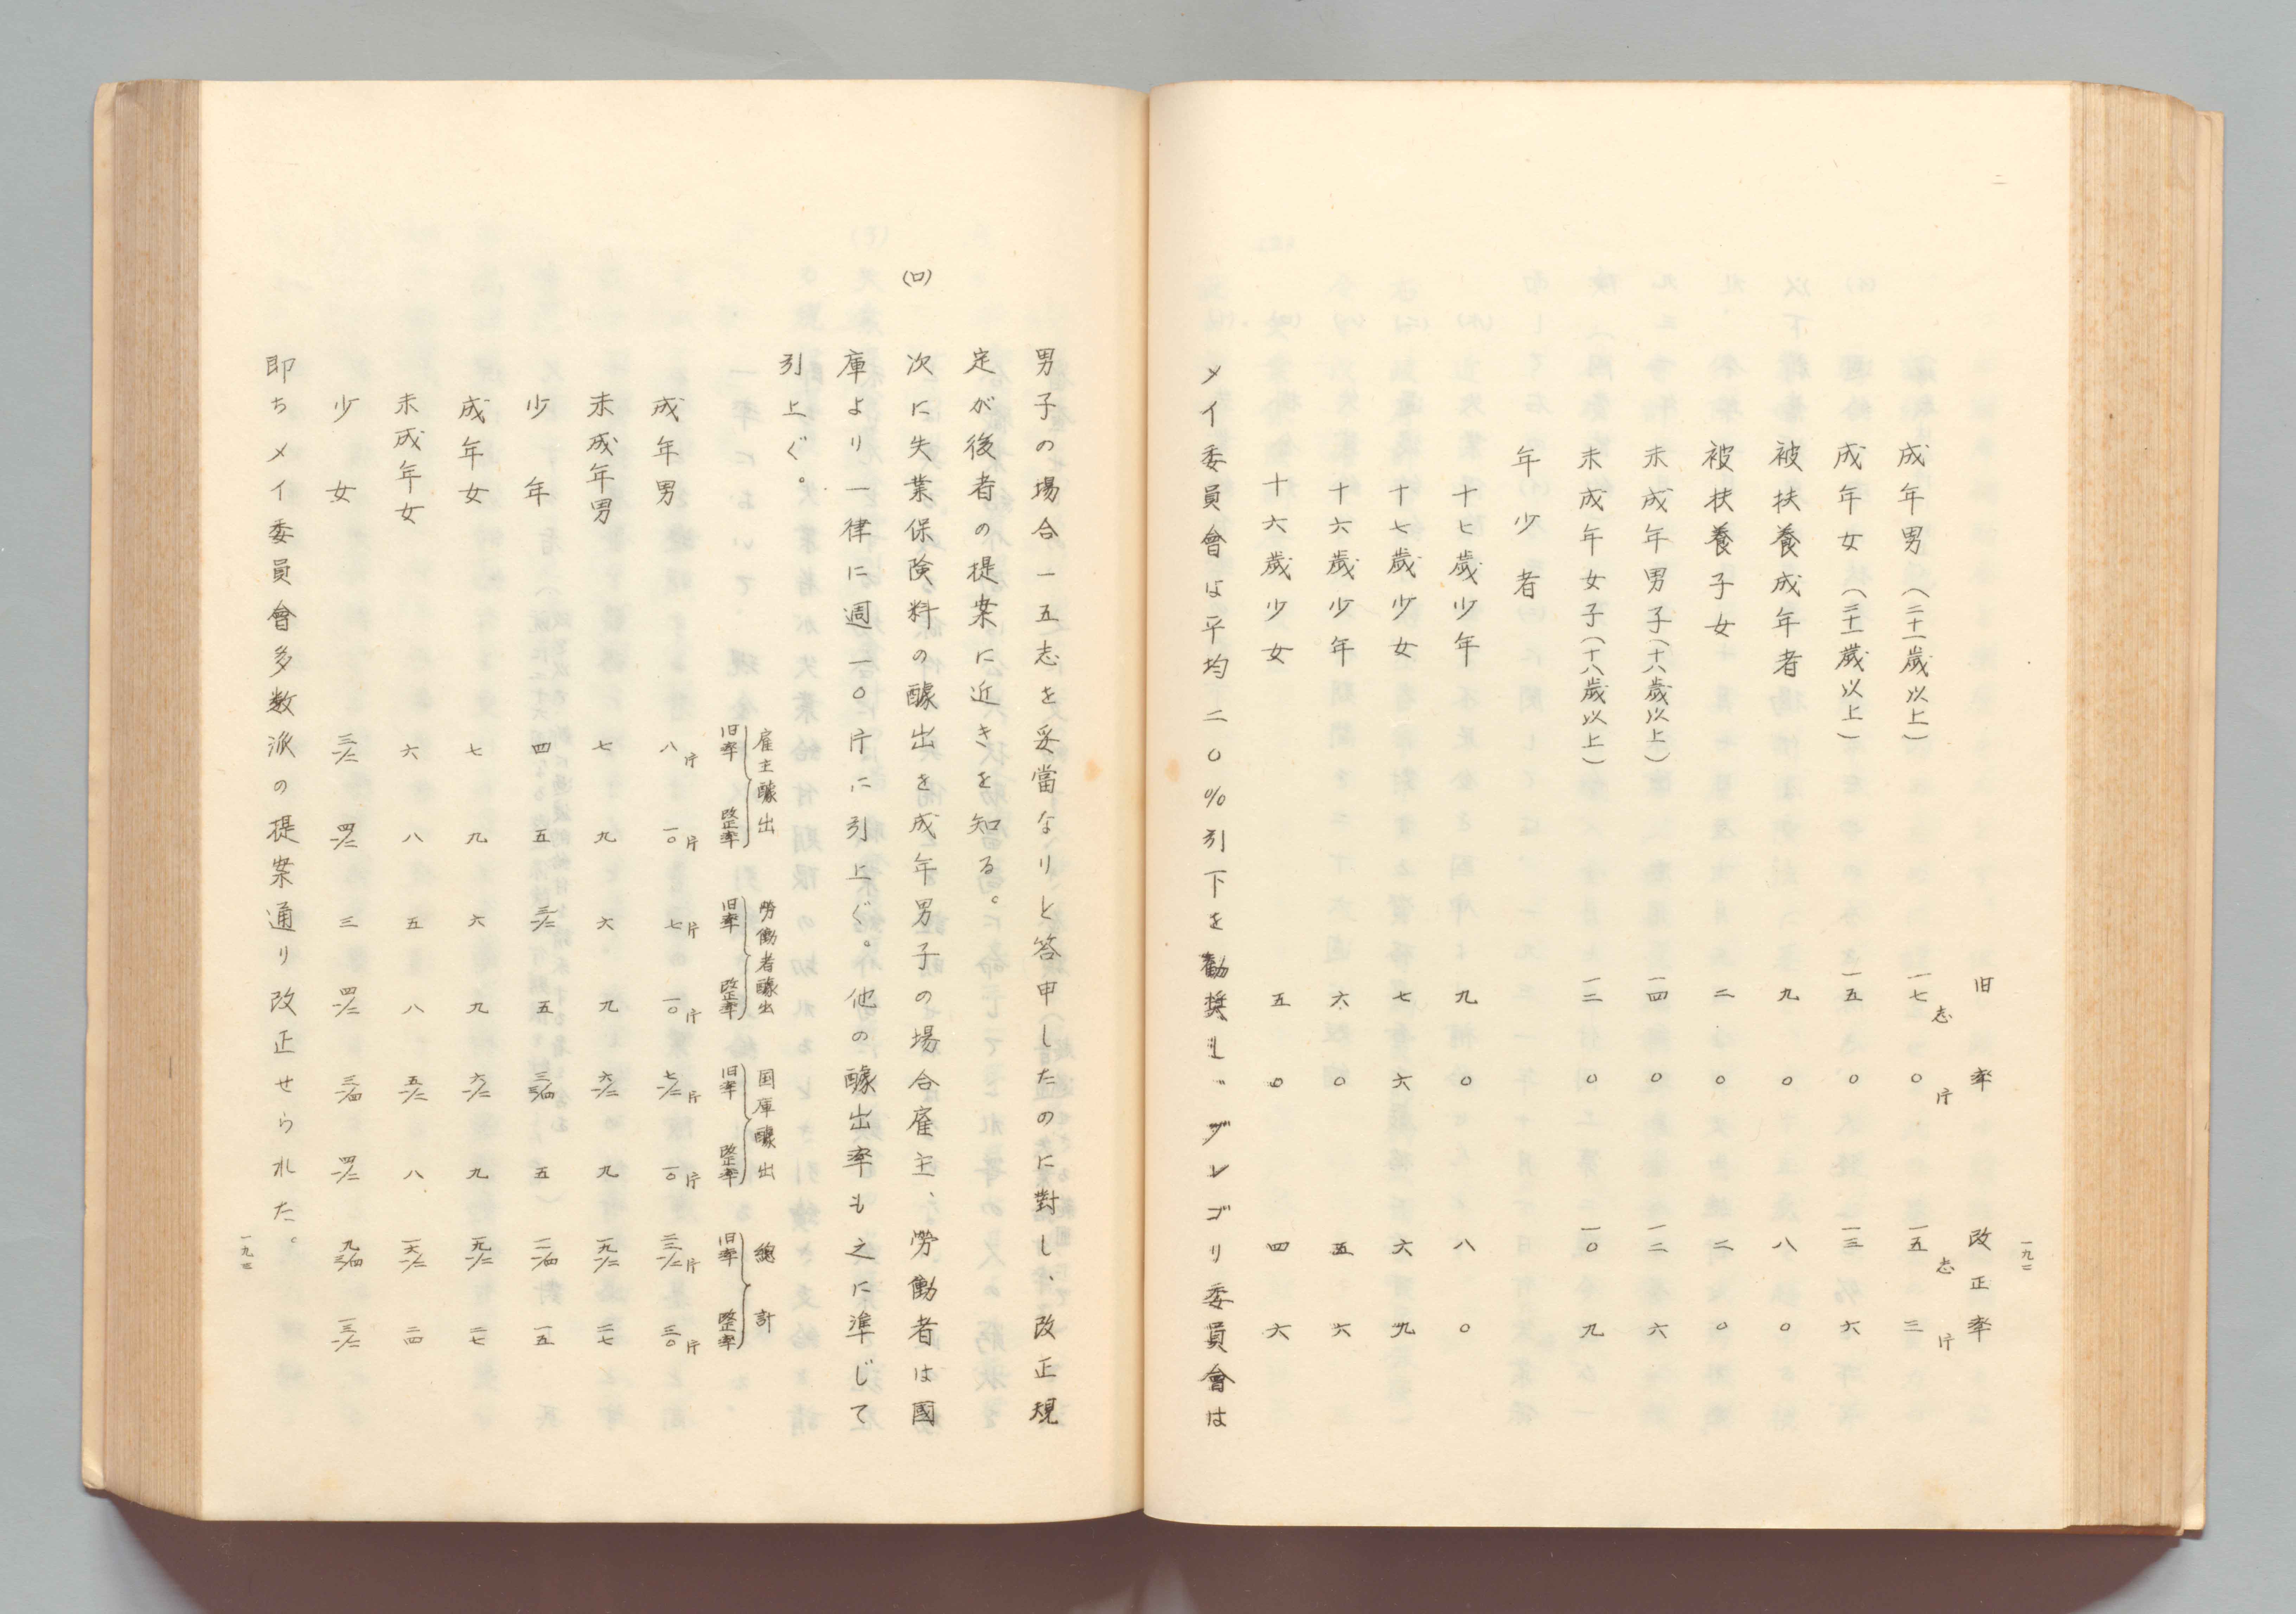 一九二
旧率 改正率
成年男(二十一歳以上) 一七志 〇片 一五志 三片
成年女(二十一歳以上) 一五 〇 一三 六
被扶養成年者 九 〇 八 〇
被扶養子女 二 〇 二 〇
未成年男子(十八歳以上) 一四 〇 一二 六
未成年女子(十八歳以上) 一二 〇 一〇 九
年少者
十七歳少年 九 〇 八 〇
十七歳少女 七 六 六 九
十六歳少年 六 〇 五 六
十六歳少女 五 〇 四 六
メイ委員會は平均二〇%引下を勧奨し、グレゴリ委員會は
男子の場合一五志を妥當なりと答申したのに對し、改正規
定が後者の提案に近きを知る。
(ロ) 次に失業保険料の醵出を成年男子の場合雇主、勞働者は國
庫より一律に週一〇片に引上ぐ。他の醵出率も之に準じて
引上ぐ。
雇主醵出 勞働者醵出 国庫醵出 總計
旧率 改正率 旧率 改正率 旧率 改正率 旧率 改正率
成年男 八片 一〇片 七片 一〇片 七1/2片 一〇片 二二1/2片 三〇片
未成年男 七 九 六 九 六1/2 九 一九1/2 二七
少年 四 五 三1/2 五 三3/4 五 一一1/4 一五
成年女 七 九 六 九 六1/2 九 一九1/2 二七
未成年女 六 八 五 八 五1/2 八 一六1/2 二四
少女 三1/2 四1/2 三 四1/2 三1/4 四1/2 九3/4 一三1/2
即ちメイ委員會多数派の提案通り改正せられた。
一九三